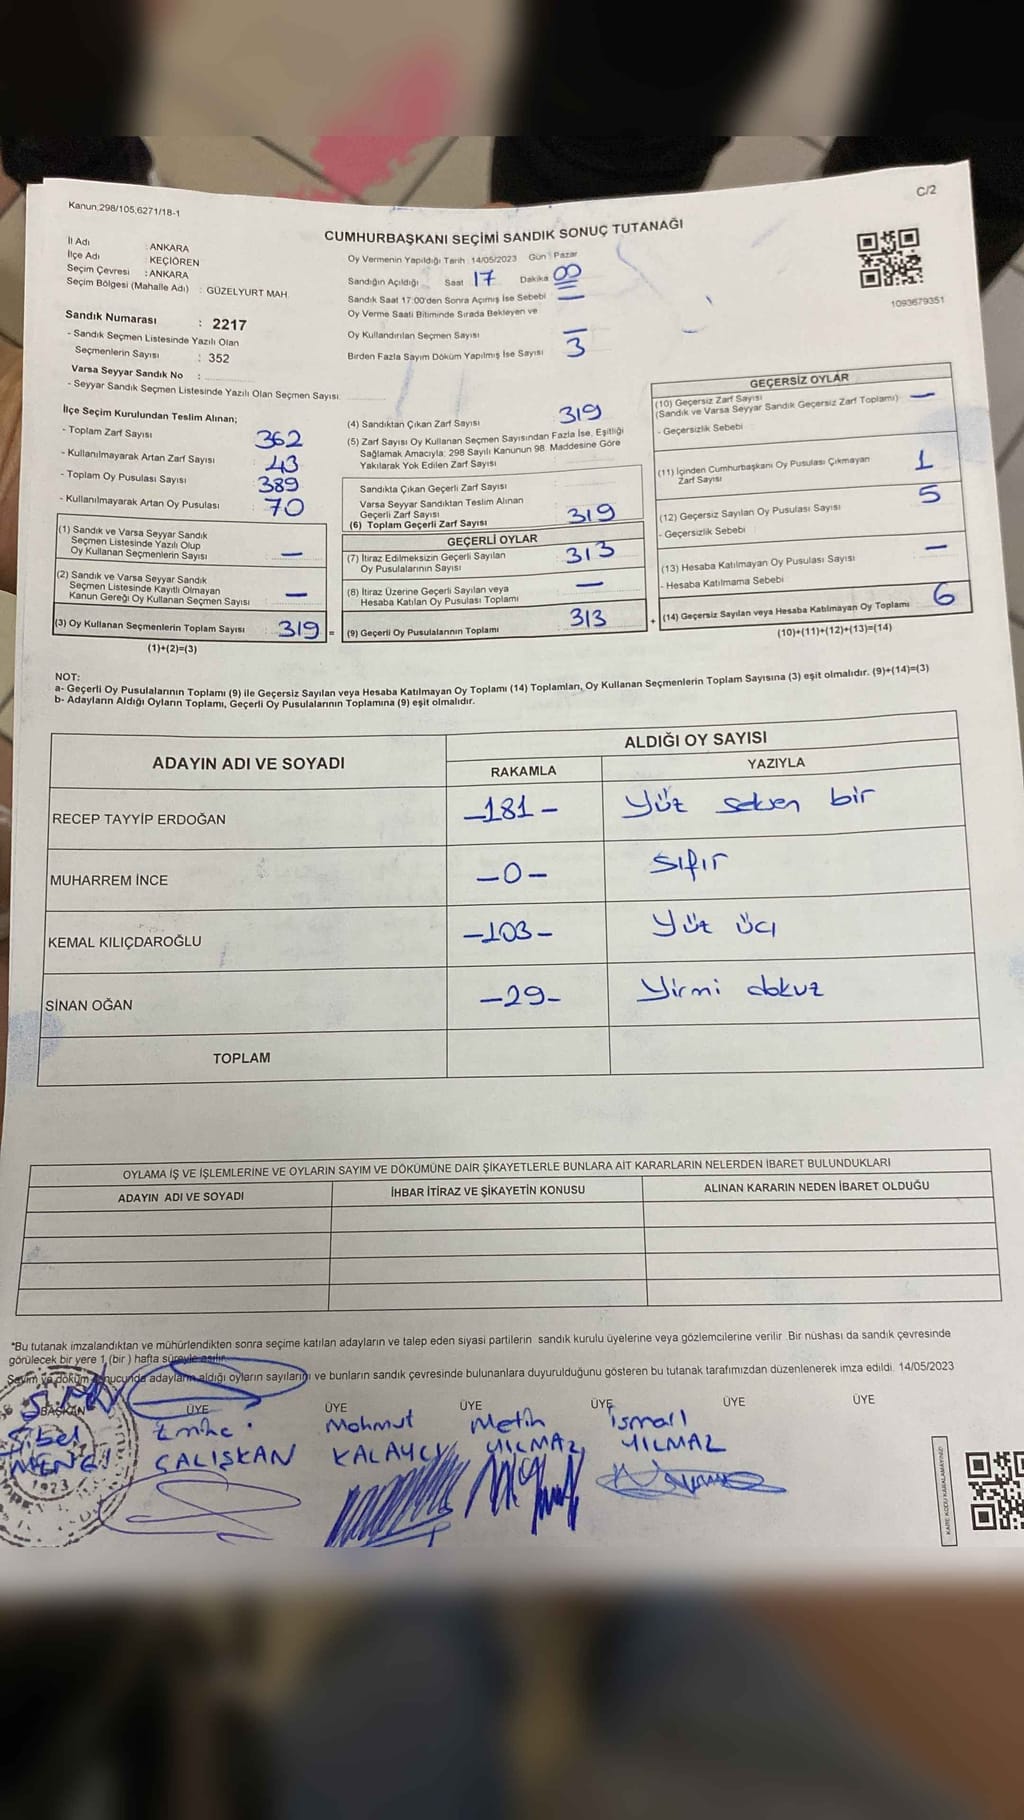 C/2
Kanun,298/105,6271/18-1
CUMHURBAŞKANI SEÇİMİ SANDIK SONUÇ TUTANAĞI
İl Adı : ANKARA
İlçe Adı : KEÇİÖREN
Seçim Çevresi : ANKARA
Seçim Bölgesi (Mahalle Adı) : GÜZELYURT MAH.
Sandık Numarası : 2217
- Sandık Seçmen Listesinde Yazılı Olan
Seçmenlerin Sayısı : 352
Varsa Seyyar Sandık No :
- Seyyar Sandık Seçmen Listesinde Yazılı Olan Seçmen Sayısı:
Oy Vermenin Yapıldığı Tarih 14/05/2023 Gün Pazar
Sandığın Açıldığı Saat 17 Dakika 00
Sandık Saat 17:00'den Sonra Açımış İse Sebebi —
Oy Verme Saati Bitiminde Sırada Bekleyen ve
Oy Kullandırılan Seçmen Sayısı —
Birden Fazla Sayım Döküm Yapılmış İse Sayısı 3
1093679351
İlçe Seçim Kurulundan Teslim Alınan;
- Toplam Zarf Sayısı 362
- Kullanılmayarak Artan Zarf Sayısı 43
- Toplam Oy Pusulası Sayısı 389
- Kullanılmayarak Artan Oy Pusulası 70
(1) Sandık ve Varsa Seyyar Sandık
Seçmen Listesinde Yazılı Olup
Oy Kullanan Seçmenlerin Sayısı —
(2) Sandık ve Varsa Seyyar Sandık
Seçmen Listesinde Kayıtlı Olmayan
Kanun Gereği Oy Kullanan Seçmen Sayısı —
(3) Oy Kullanan Seçmenlerin Toplam Sayısı 319 =
(1)+(2)=(3)
(4) Sandıktan Çıkan Zarf Sayısı 319
(5) Zarf Sayısı Oy Kullanan Seçmen Sayısından Fazla İse, Eşitliği
Sağlamak Amacıyla; 298 Sayılı Kanunun 98. Maddesine Göre
Yakılarak Yok Edilen Zarf Sayısı
Sandıkta Çıkan Geçerli Zarf Sayısı
Varsa Seyyar Sandıktan Teslim Alınan
Geçerli Zarf Sayısı
(6) Toplam Geçerli Zarf Sayısı 319
GEÇERLİ OYLAR
(7) İtiraz Edilmeksizin Geçerli Sayılan
Oy Pusulalarının Sayısı 313
(8) İtiraz Üzerine Geçerli Sayılan veya
Hesaba Katılan Oy Pusulası Toplamı —
(9) Geçerli Oy Pusulalarının Toplamı 313 +
GEÇERSİZ OYLAR
(10) Geçersiz Zarf Sayısı —
(Sandık ve Varsa Seyyar Sandık Geçersiz Zarf Toplamı)
- Geçersizlik Sebebi
(11) İçinden Cumhurbaşkanı Oy Pusulası Çıkmayan
Zarf Sayısı 1
(12) Geçersiz Sayılan Oy Pusulası Sayısı 5
- Geçersizlik Sebebi
(13) Hesaba Katılmayan Oy Pusulası Sayısı —
- Hesaba Katılmama Sebebi
(14) Geçersiz Sayılan veya Hesaba Katılmayan Oy Toplamı 6
(10)+(11)+(12)+(13)=(14)
NOT:
a- Geçerli Oy Pusulalarının Toplamı (9) ile Geçersiz Sayılan veya Hesaba Katılmayan Oy Toplamı (14) Toplamları, Oy Kullanan Seçmenlerin Toplam Sayısına (3) eşit olmalıdır. (9)+(14)=(3)
b- Adayların Aldığı Oyların Toplamı, Geçerli Oy Pusulalarının Toplamına (9) eşit olmalıdır.
ADAYIN ADI VE SOYADI
ALDIĞI OY SAYISI
RAKAMLA YAZIYLA
RECEP TAYYİP ERDOĞAN —181— Yüz seksen bir
MUHARREM İNCE —0— Sıfır
KEMAL KILIÇDAROĞLU —103— Yüz üç
SİNAN OĞAN —29— Yirmi dokuz
TOPLAM
OYLAMA İŞ VE İŞLEMLERİNE VE OYLARIN SAYIM VE DÖKÜMÜNE DAİR ŞİKAYETLERLE BUNLARA AİT KARARLARIN NELERDEN İBARET BULUNDUKLARI
ADAYIN ADI VE SOYADI İHBAR İTİRAZ VE ŞİKAYETİN KONUSU ALINAN KARARIN NEDEN İBARET OLDUĞU
*Bu tutanak imzalandıktan ve mühürlendikten sonra seçime katılan adayların ve talep eden siyasi partilerin sandık kurulu üyelerine veya gözlemcilerine verilir. Bir nüshası da sandık çevresinde
görülecek bir yere 1 (bir) hafta süreyle asılır.
Sayım ve döküm sonucunda adayların aldığı oyların sayılarını ve bunların sandık çevresinde bulunanlara duyurulduğunu gösteren bu tutanak tarafımızdan düzenlenerek imza edildi. 14/05/2023
BAŞKAN ÜYE ÜYE ÜYE ÜYE ÜYE ÜYE
Sibel Emine Mahmut Metin ismail
MENGİ ÇALIŞKAN KALAYCI YILMAZ YILMAZ
1923
KARE KODU KARALAMAYINIZ!